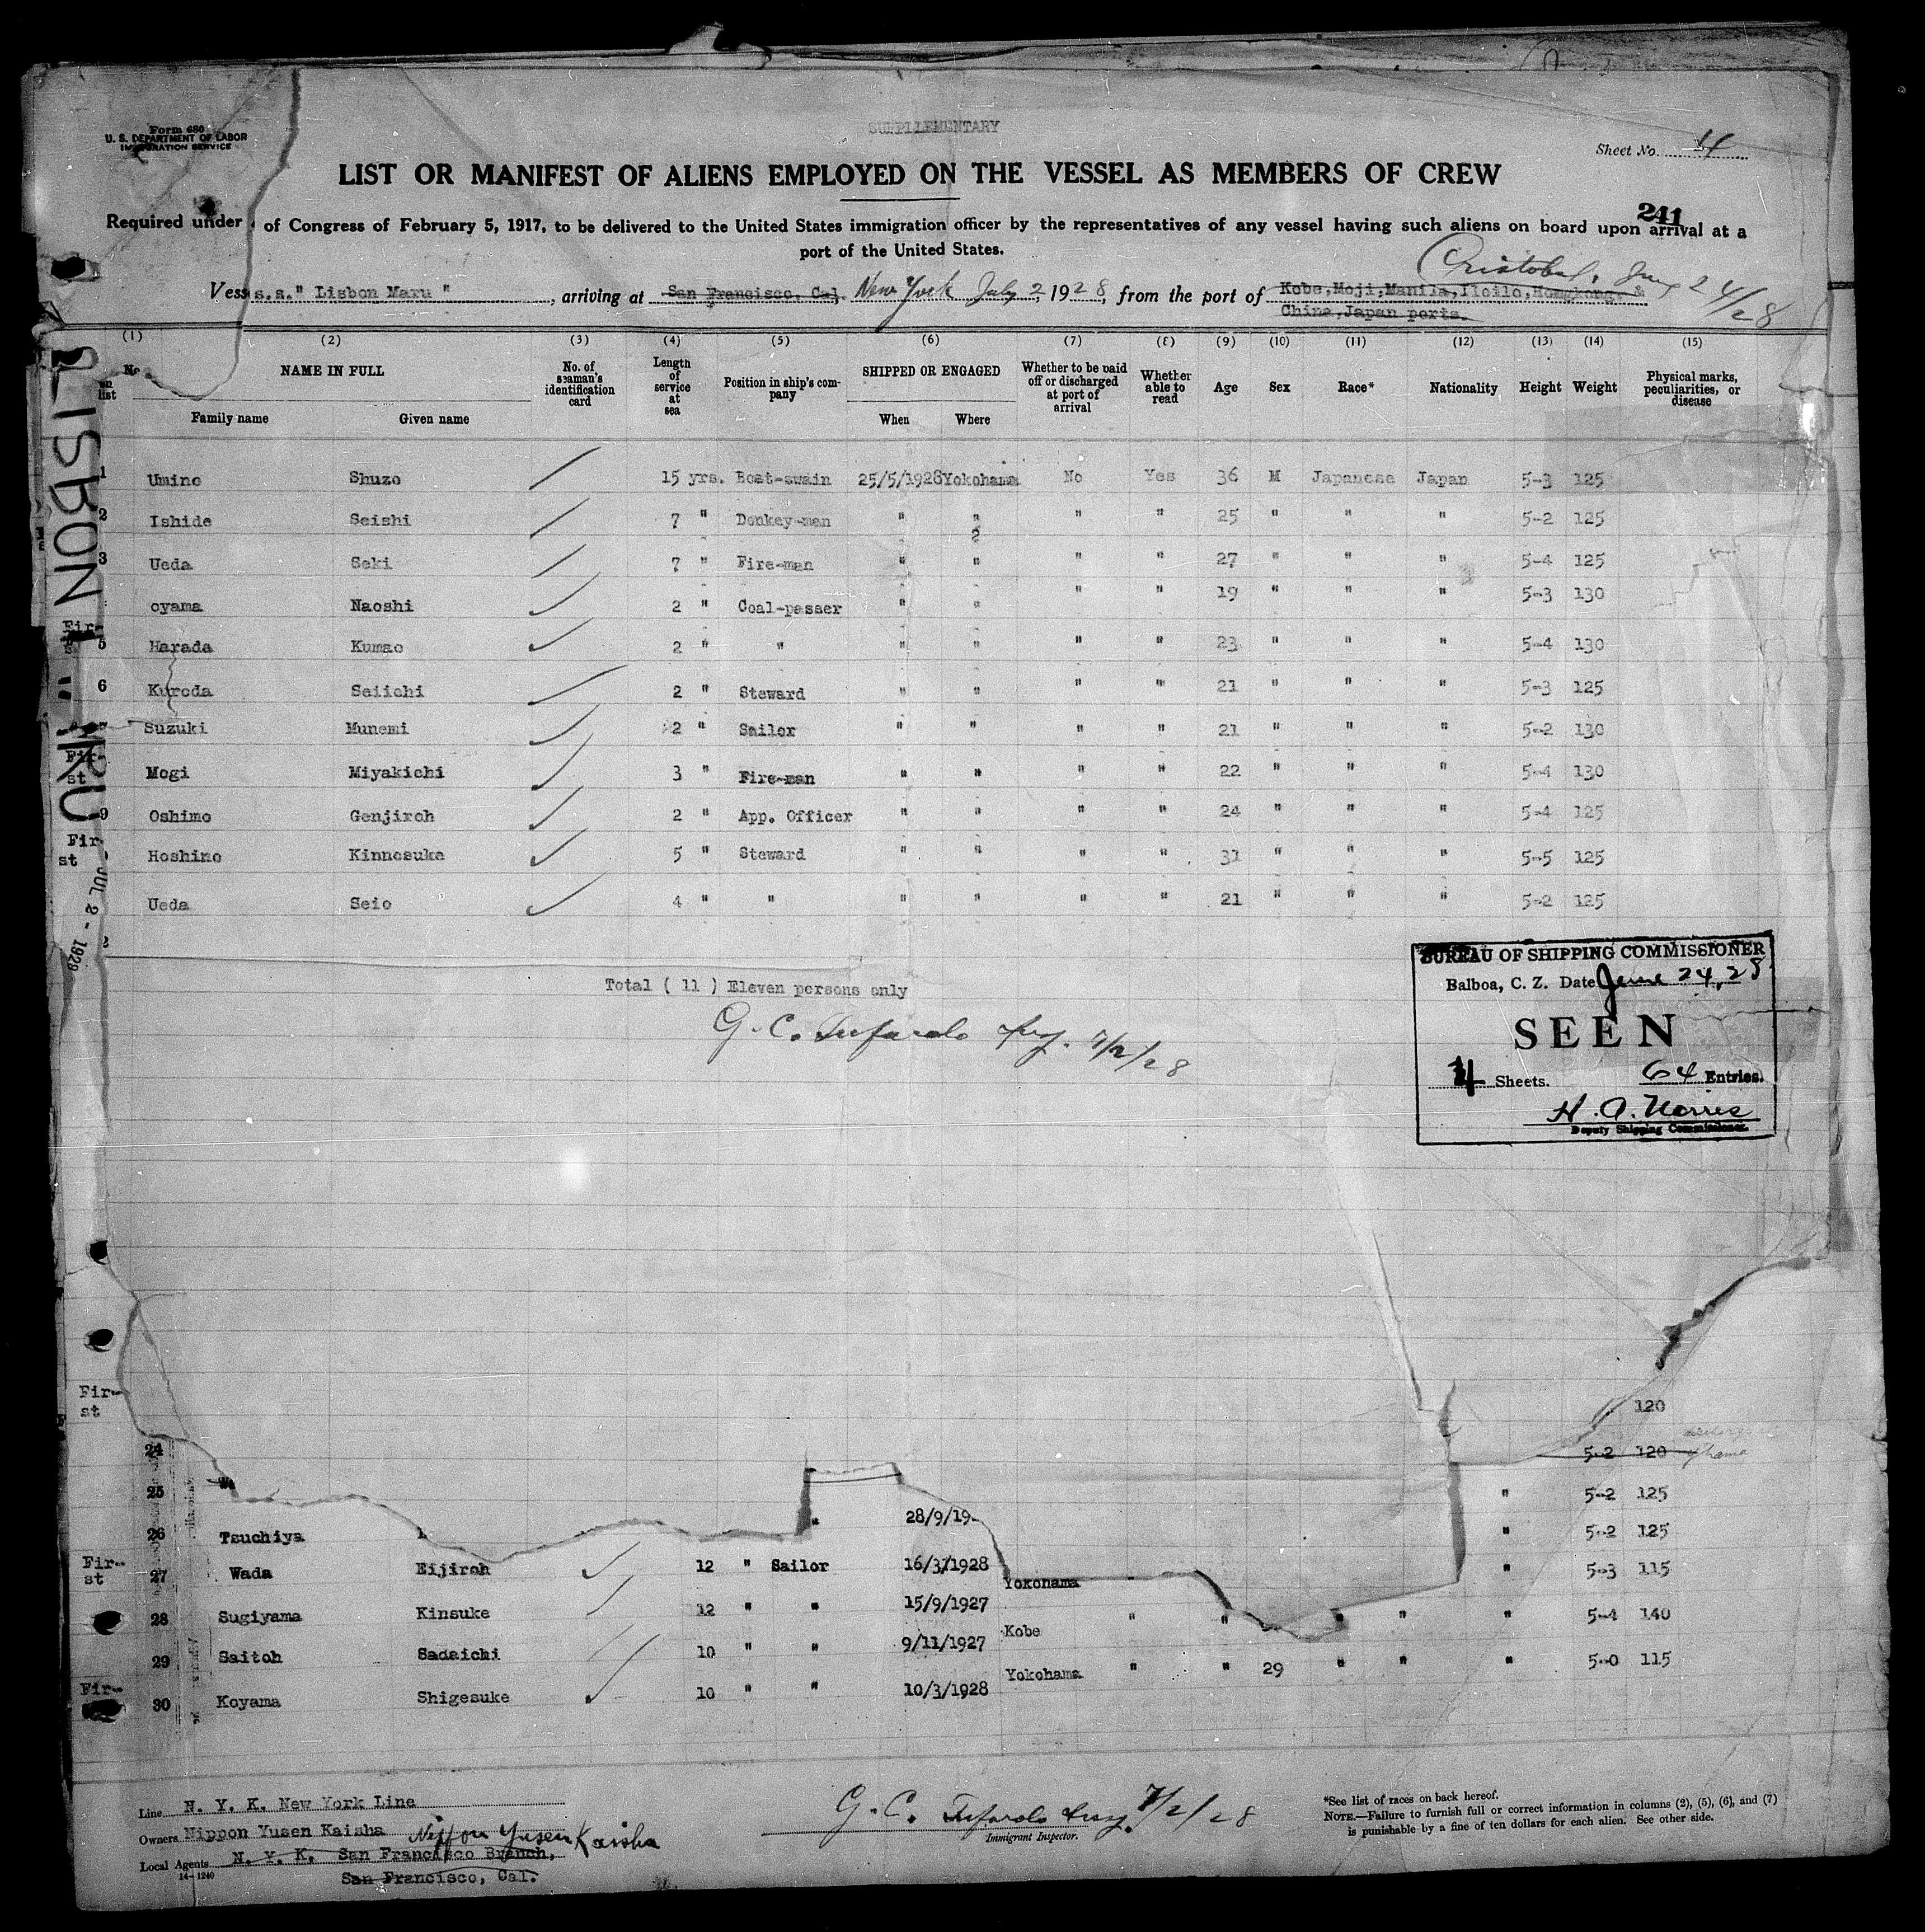 Form 680
U. S. DEPARTMENT OF LABOR
IMMIGRATION SERVICE
SUPPLEMENTARY
Sheet No. 4
LIST OR MANIFEST OF ALIENS EMPLOYED ON THE VESSEL AS MEMBERS OF CREW
241
Required under of Congress of February 5, 1917, to be delivered to the United States immigration officer by the representatives of any vessel having such aliens on board upon arrival at a
port of the United States.
Cristobal, June 24/28
Vess s.s." Lisbon Maru ", arriving at San Francisco, Cal. New York July 2, 1928, from the port of Kobe,Moji,Manila,Iloilo,Hongkong, &
China,Japan ports.
(1) (2) (3) (4) (5) (6) (7) (8) (9) (10) (11) (12) (13) (14) (15)
No. on list NAME IN FULL Family name Given name No. of seaman's identification card Length of service at sea Position in ship's company SHIPPED OR ENGAGED When Where Whether to be paid off or discharged at port of arrival Whether able to read Age Sex Race* Nationality Height Weight Physical marks, peculiarities, or disease
1 Umino Shuzo 15 yrs. Boat-swain 25/5/1928 Yokohama No Yes 36 M Japanese Japan 5-3 125
2 Ishide Seishi 7 " Donkey-man " " " " 25 " " " 5-2 125
3 Ueda Seki 7 " Fire-man " " " " 27 " " " 5-4 125
oyama Naoshi 2 " Coal-passer " " " " 19 " " " 5-3 130
Fir-
5 Harada Kumao 2 " " " " " " 23 " " " 5-4 130
6 Kuroda Seiichi 2 " Steward " " " " 21 " " " 5-3 125
7 Suzuki Munemi 2 " Sailor " " " " 21 " " " 5-2 130
Fir-
st Mogi Miyakichi 3 " Fire-man " " " " 22 " " " 5-4 130
9 Oshimo Genjiroh 2 " App. Officer " " " " 24 " " " 5-4 125
Fir-
st Hoshino Kinnosuke 5 " Steward " " " " 31 " " " 5-5 125
Ueda Seio 4 " " " " " " 21 " " " 5-2 125
LISBON
RU
JUL 2 - 1928
Total ( 11 ) Eleven persons only
G. C. 7/2/28
BUREAU OF SHIPPING COMMISSIONER
Balboa, C. Z. Date June 24, 28
SEEN
4 Sheets. 64 Entries.
H. A. Norris
Deputy Shipping Commissioner.
Fir-
st 120
24 5-2 120
25 " 5-2 125
26 Tsuchiya " 28/9/19 " 5-2 125
Fir-
st 27 Wada Eijiroh 12 " Sailor 16/3/1928 Yokohama " " 5-3 115
28 Sugiyama Kinsuke 12 " " 15/9/1927 Kobe " " " " " 5-4 140
29 Saitoh Sadaichi 10 " " 9/11/1927 Yokohama " " 29 " " " 5-0 115
Fir-
30 Koyama Shigesuke 10 " " 10/3/1928
Line N. Y. K. New York Line
Owners Nippon Yusen Kaisha Nippon Yusen Kaisha
Local Agents N. Y. K. San Francisco Branch,
San Francisco, Cal.
14-1240
G. C. 7/2/28
Immigrant Inspector.
*See list of races on back hereof.
NOTE.—Failure to furnish full or correct information in columns (2), (5), (6), and (7)
is punishable by a fine of ten dollars for each alien. See other side.